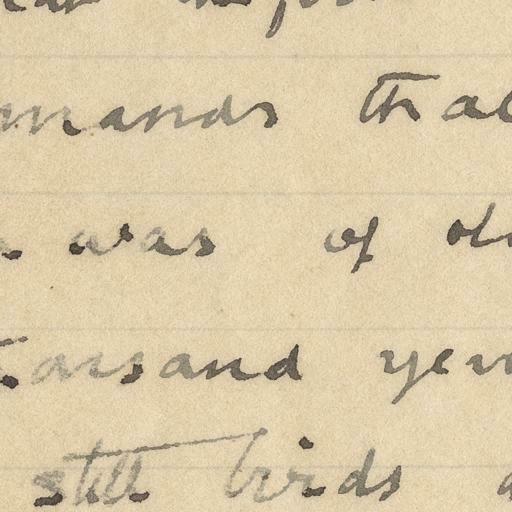 mands that
was of old
thousand year
still birds